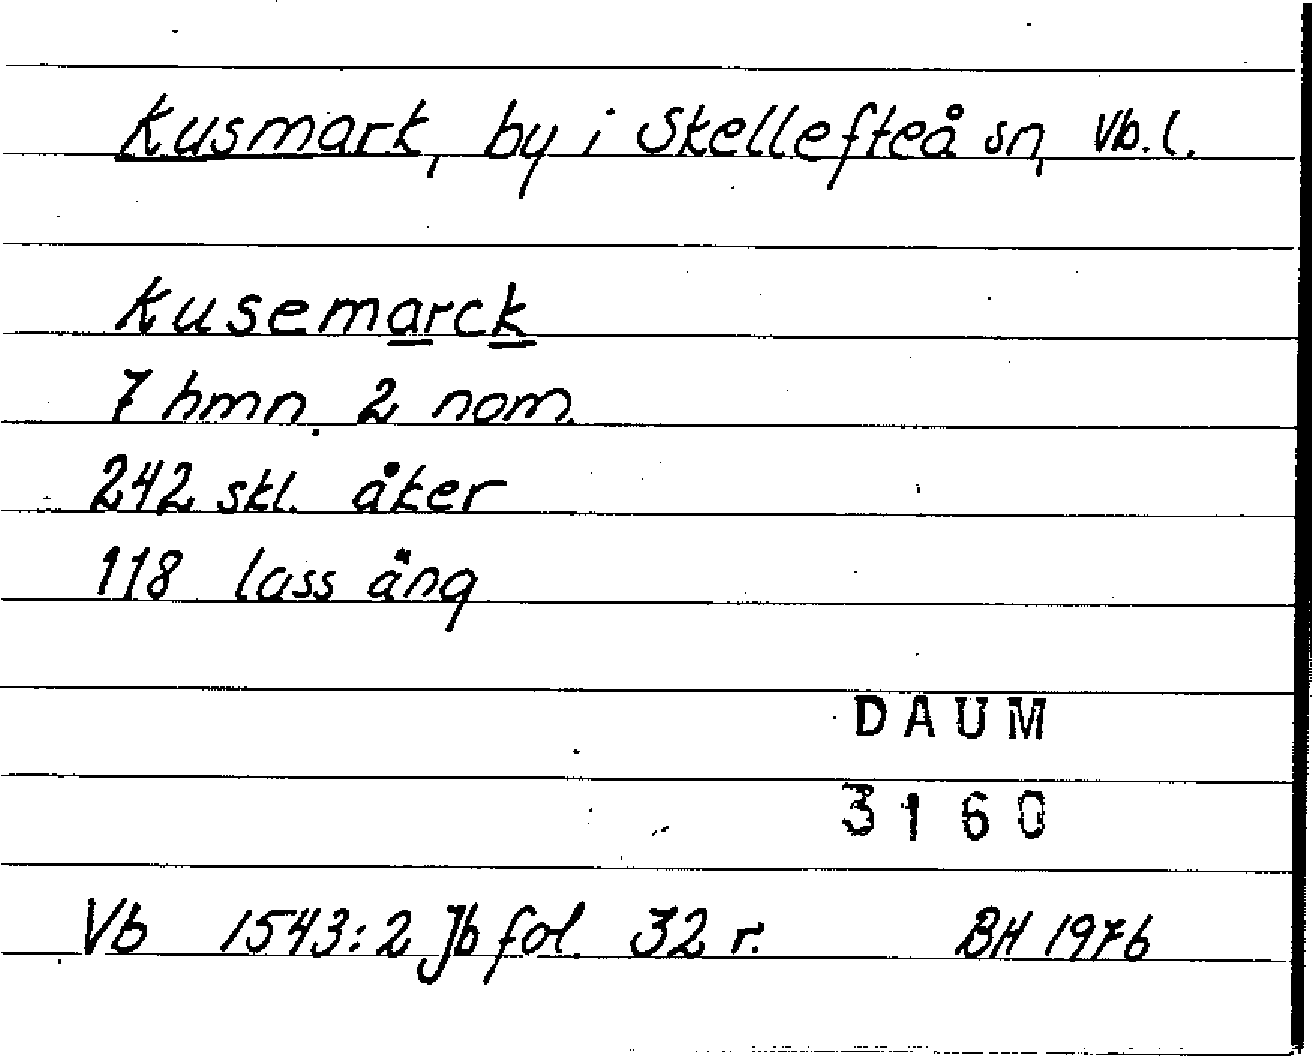 Kusmark, by i Skellefteå sn, Vb.l.
Kusemarck
7 hmn. 2 nom.
242 skl. åker
118 lass äng
DAUM
3160
Vb 1543:2 Jb fol. 32 r. BH 1976